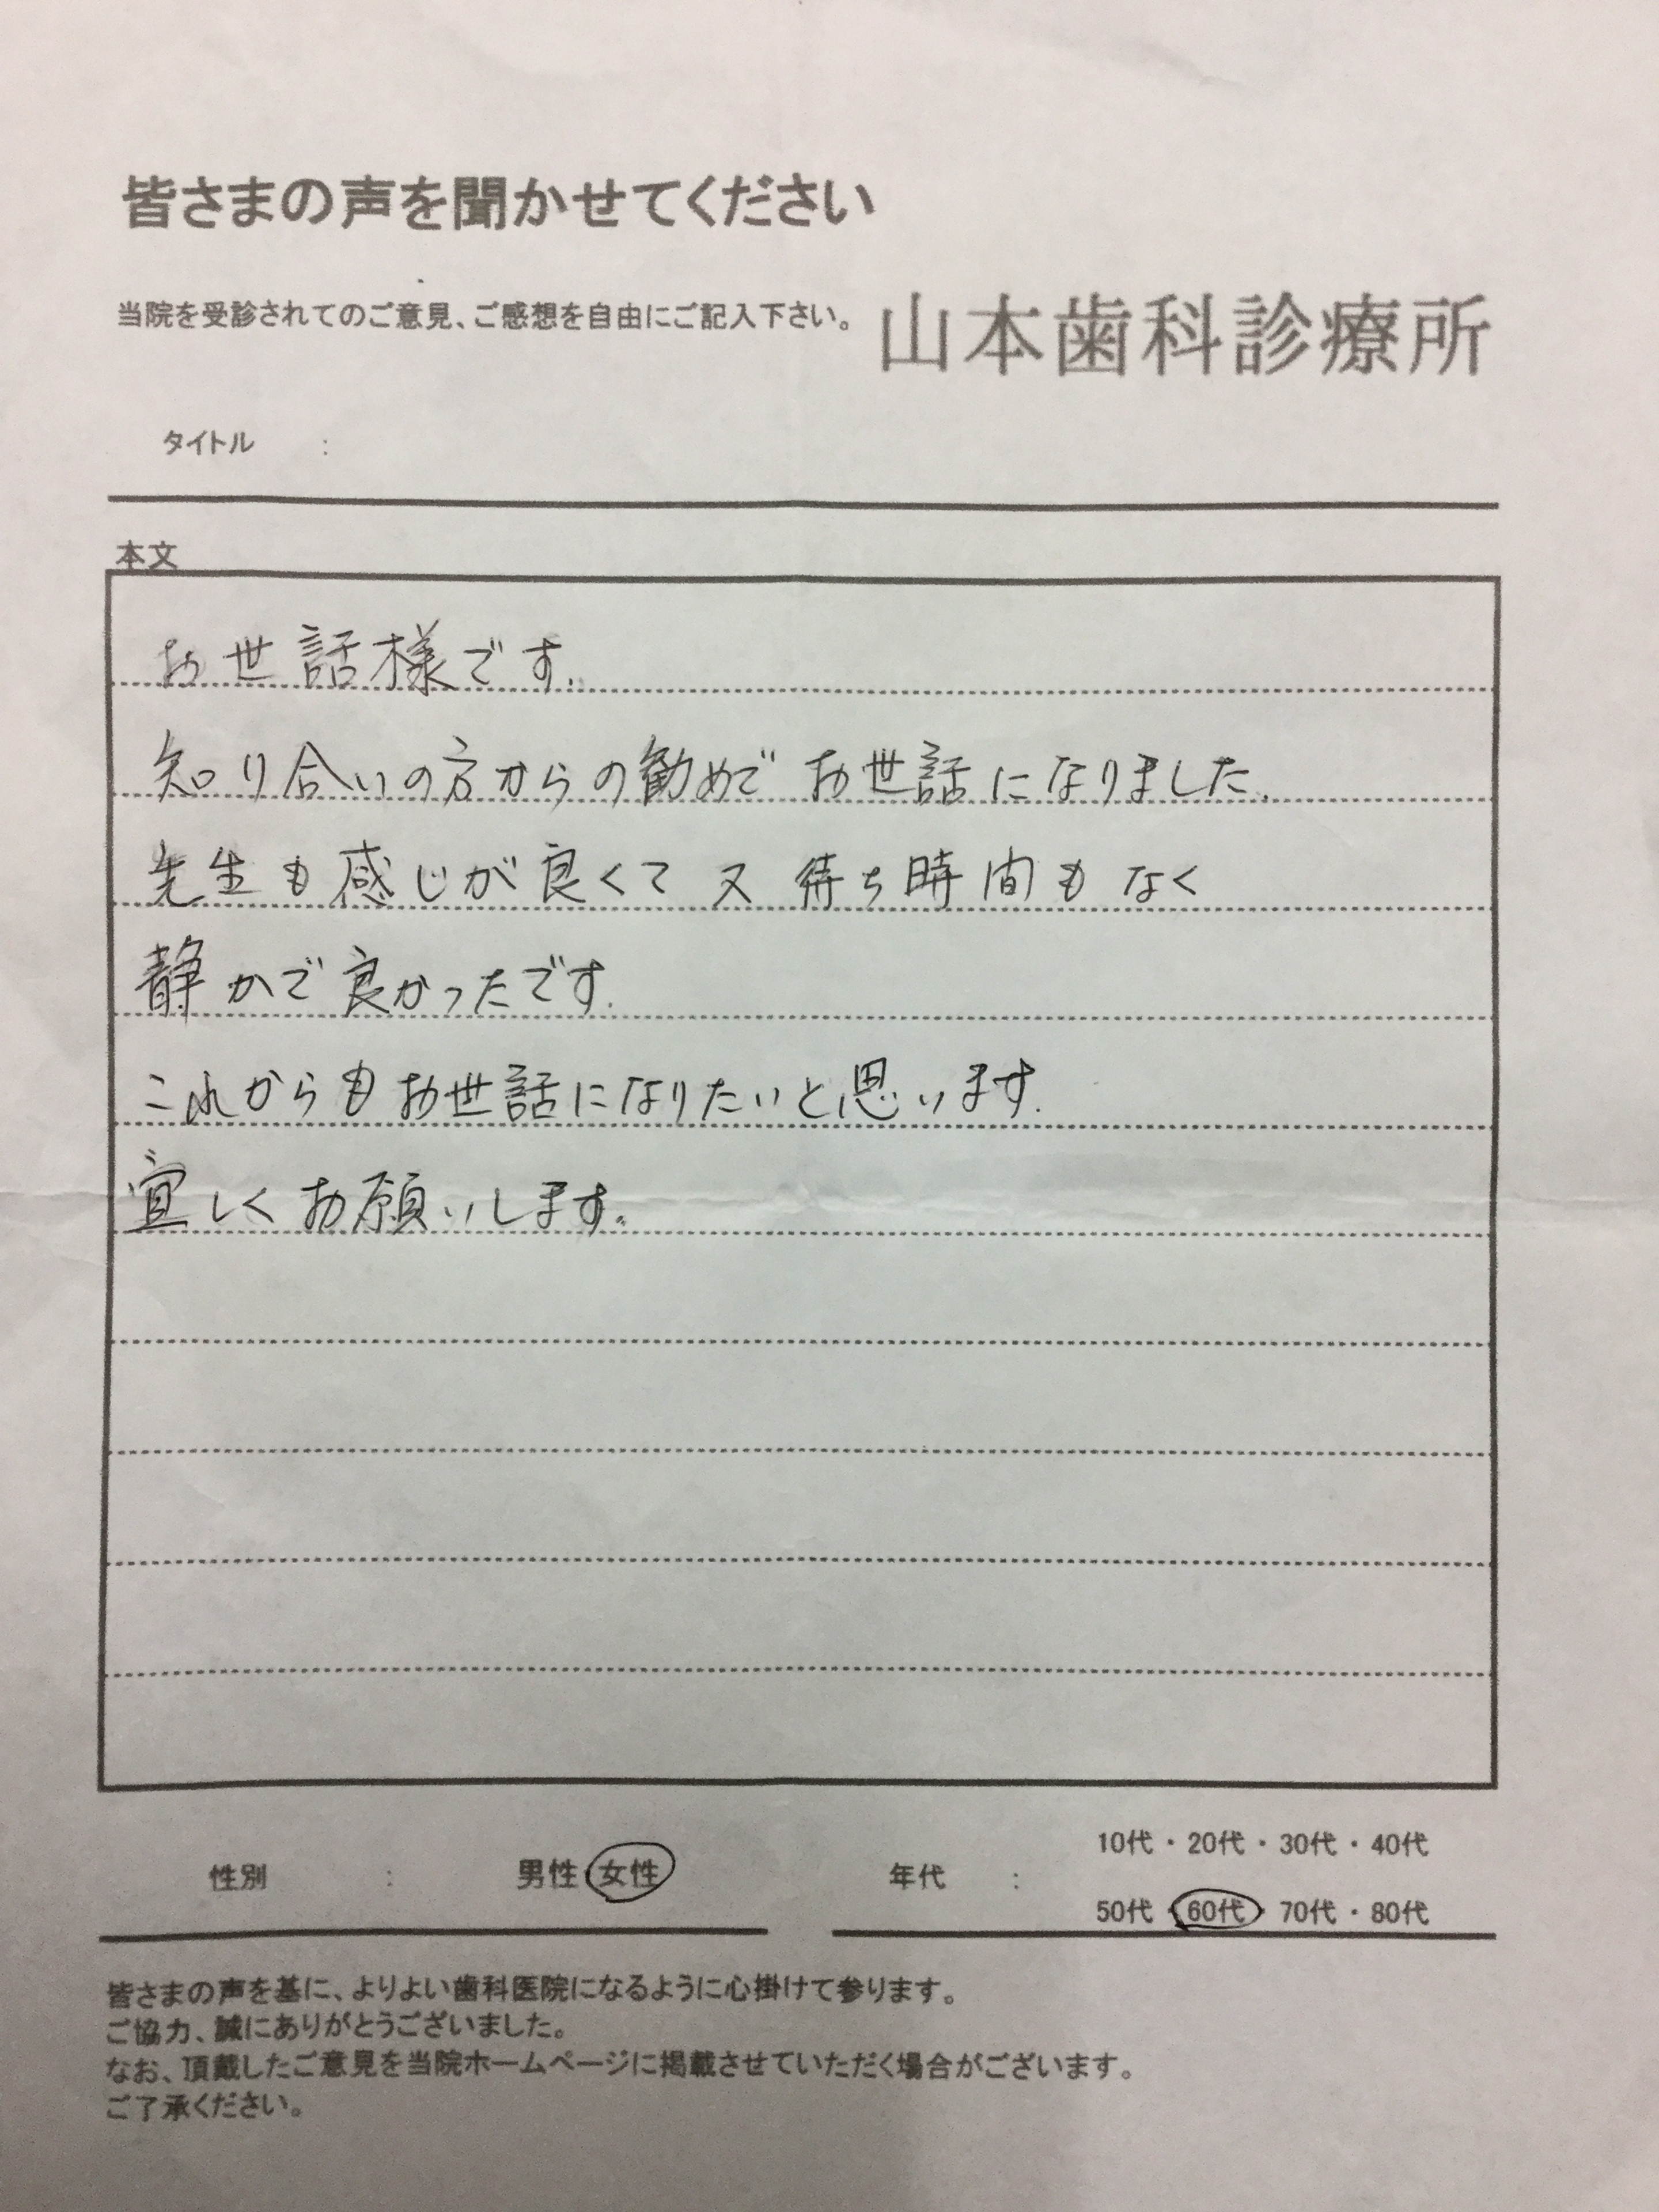 皆さまの声を聞かせてください
当院を受診されてのご意見、ご感想を自由にご記入下さい。
山本歯科診療所
タイトル :
本文
お世話様です.
知り合いの方からの勧めで お世話になりました.
先生も感じが良くて 又 待ち時間も なく
静かで 良かったです.
これからも お世話になりたいと思います.
宜しく お願いします。
性別 : 男性・女性
年代 : 10代・20代・30代・40代
50代・60代・70代・80代
皆さまの声を基に、よりよい歯科医院になるように心掛けて参ります。
ご協力、誠にありがとうございました。
なお、頂戴したご意見を当院ホームページに掲載させていただく場合がございます。
ご了承ください。